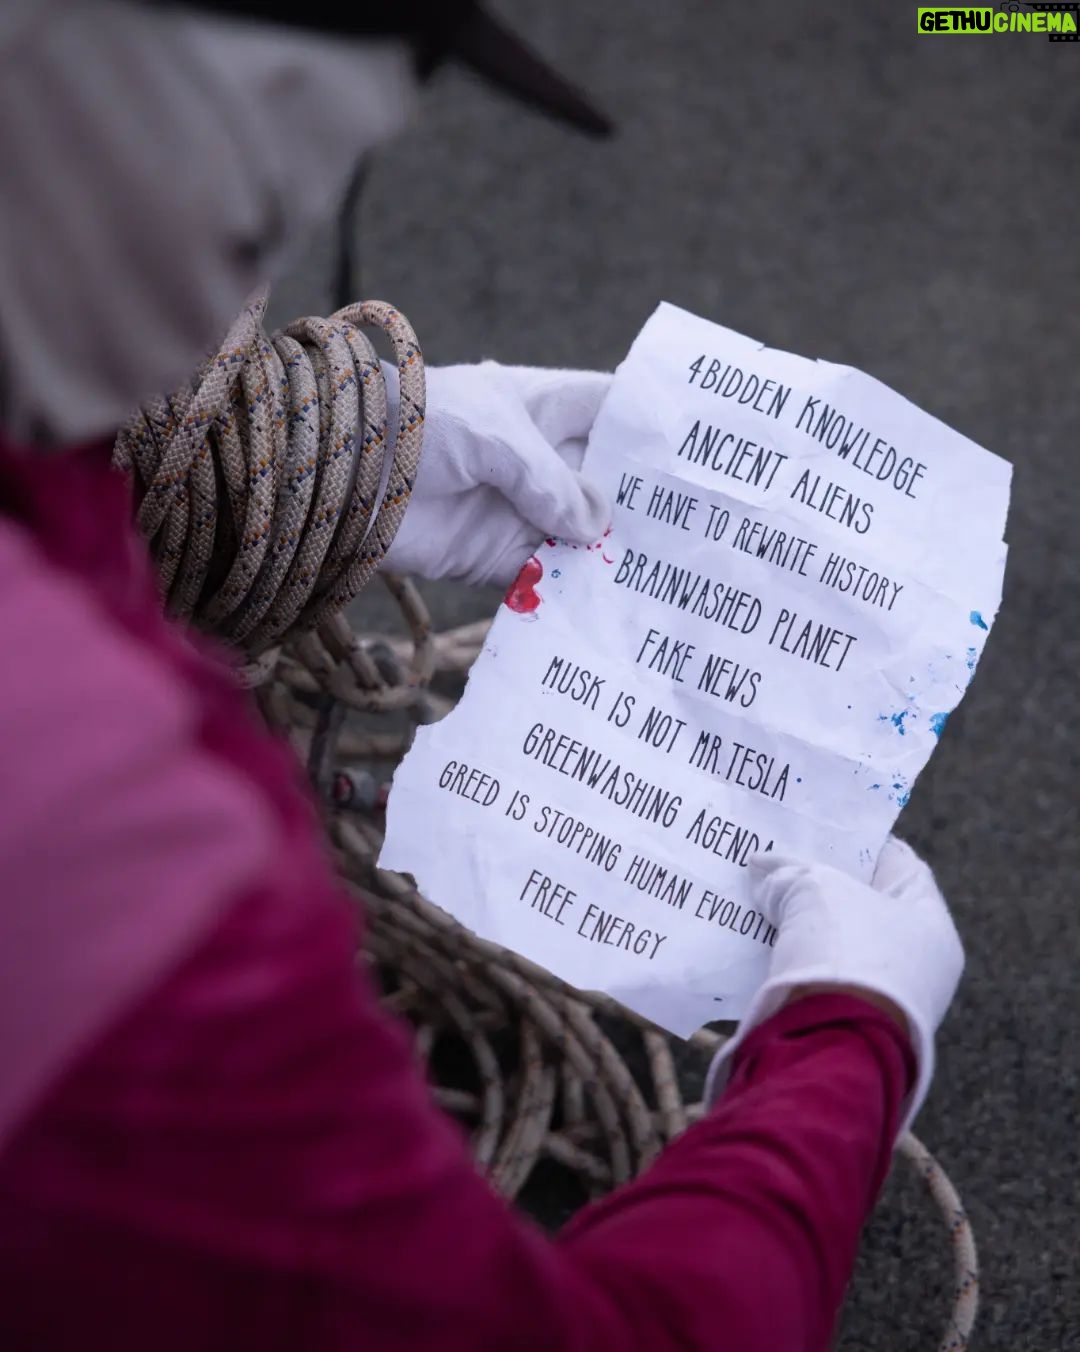 GETHUCINEMA
4BIDDEN KNOWLEDGE
ANCIENT ALIENS
WE HAVE TO REWRITE HISTORY
BRAINWASHED PLANET
FAKE NEWS
MUSK IS NOT MR.TESLA.
GREENWASHING AGENDA
GREED IS STOPPING HUMAN
FREE ENERGY